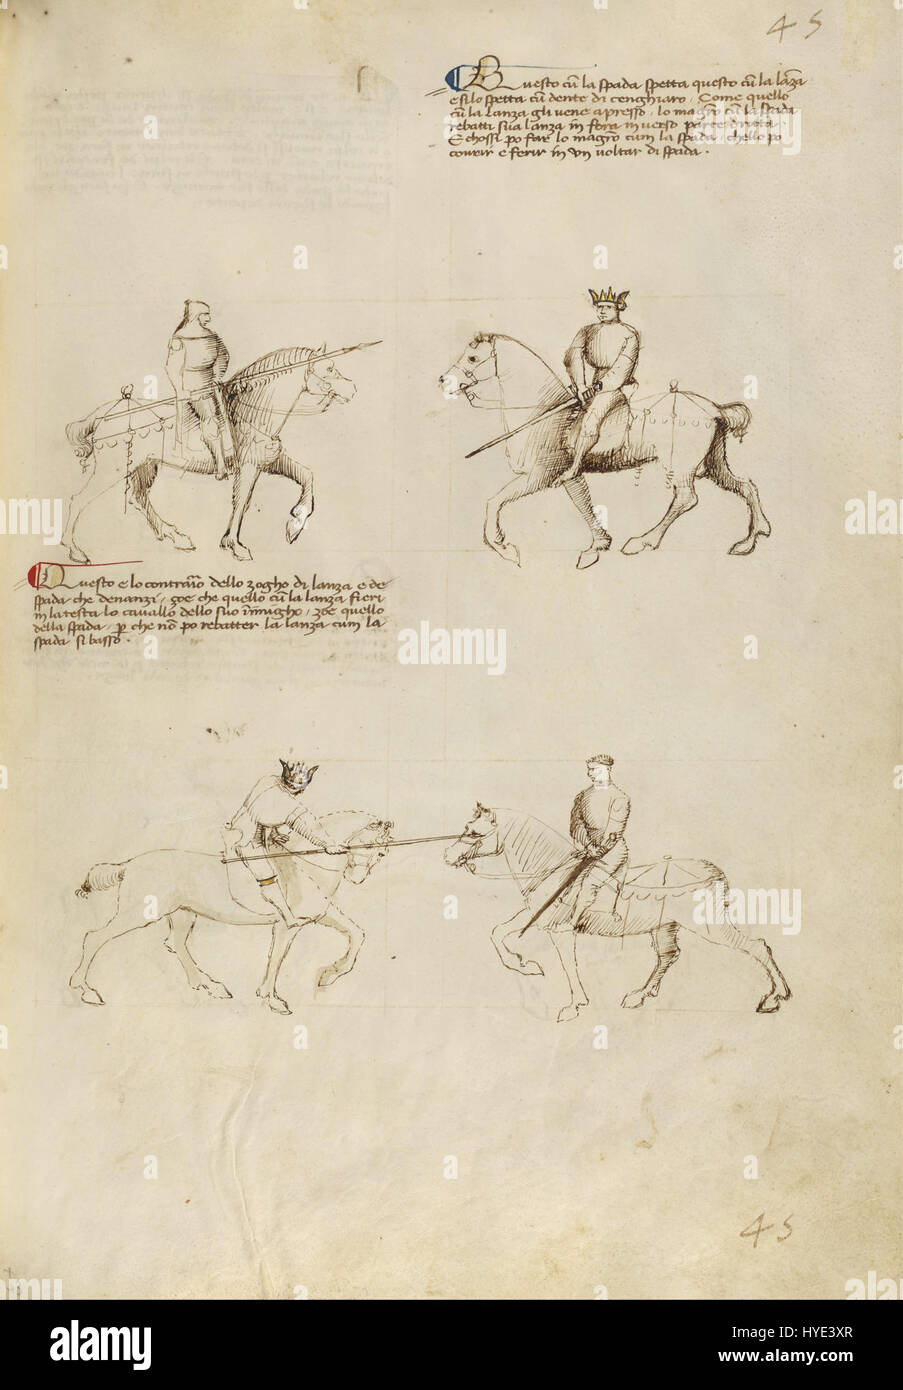 45
Questo cu~ la spada spetta questo cu~ la lanza
e si lo spetta cu~ dente di cenghiaro. Come quello
cu~ la lanza gli vene apresso, lo magro cu~ la spada
rebatti sua lanza in fora inverso parte dritta.
E chossi po far lo magro cum la spada, chello po
covrir e ferir in un voltar di spada.
Questo e lo contrario dello zogho di lanza e de
spada che denanzi, zoe che quello cu~ la lanza fieri
in la testa lo cavallo dello suo inimigho, zoe quello
della spada, p~ che no~ po rebatter la lanza cum la
spada si basso.
45
alamy
Image ID: HYE3XR
www.alamy.com